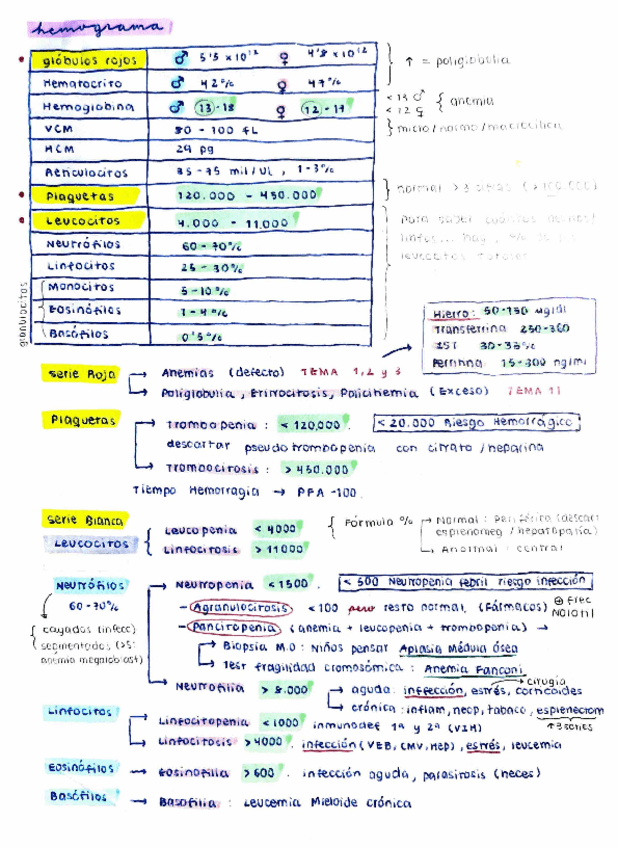 hemograma
glóbulos rojos ♂ 5'5 x 10¹² ♀ 4'8 x 10¹² ↑ = poliglobulia
Hematocrito ♂ 42% ♀ 47%
Hemoglobina ♂ 13-18 ♀ 12-17 <13 ♂ <12 ♀ anemia
VCM 80 - 100 fL micro/normo/macrocítica
HCM 29 pg
Reticulocitos 35 - 75 mil/UL, 1-3%
Plaquetas 120.000 - 450.000 normal > 3 cifras (>100.000)
Leucocitos 4.000 - 11.000 para saber cuántos
Neutrófilos 60 - 70% linfoc... hay, % de los
Linfocitos 25 - 30% leucocitos totales
granulocitos
Monocitos 5-10%
Eosinófilos 1-4%
Basófilos 0'5%
Hierro: 50-150 ug/dl
Transferrina 250-360
IST 30-35%
Ferritina 15-300 ng/ml
Serie Roja → Anemias (defecto) TEMA 1,2 y 3
→ Poliglobulia, Eritrocitosis, Policitemia (Exceso) TEMA 11
Plaquetas → Trombopenia: <120,000. <20.000 Riesgo Hemorrágico
descartar pseudotrombopenia con citrato/heparina
→ Trombocitosis: >450.000
Tiempo Hemorragia → PFA-100.
Serie Blanca
Leucocitos Leucopenia <4000 Fórmula % → Normal: Periférica (descart esplenomeg/hepatopatía)
Linfocitosis >11000 → Anormal: central
Neutrófilos → Neutropenia <1500 <500 Neutropenia febril riesgo infección
60-70% - Agranulocitosis <100 pero resto normal (Fármacos) ⊕ frec Nolotil
cayados (infecc) - Pancitopenia (anemia + leucopenia + trombopenia) →
segmentados (>5: anemia megaloblast) → Biopsia M.O: Niños pensar Aplasia Médula Ósea
→ Test fragilidad cromosómica: Anemia Fanconi
→ Neutrofilia >8.000 → aguda: infección, estrés, corticoides cirugía
→ crónica: inflam, neop, tabaco, esplenectom
Linfocitos → Linfocitopenia <1000 inmunodef 1ª y 2ª (VIH) ↑3 series
→ Linfocitosis >4000. infección (VEB, CMV, Hep), estrés, leucemia
Eosinófilos → Eosinofilia >600. infección aguda, parasitosis (heces)
Basófilos → Basofilia: Leucemia Mieloide crónica